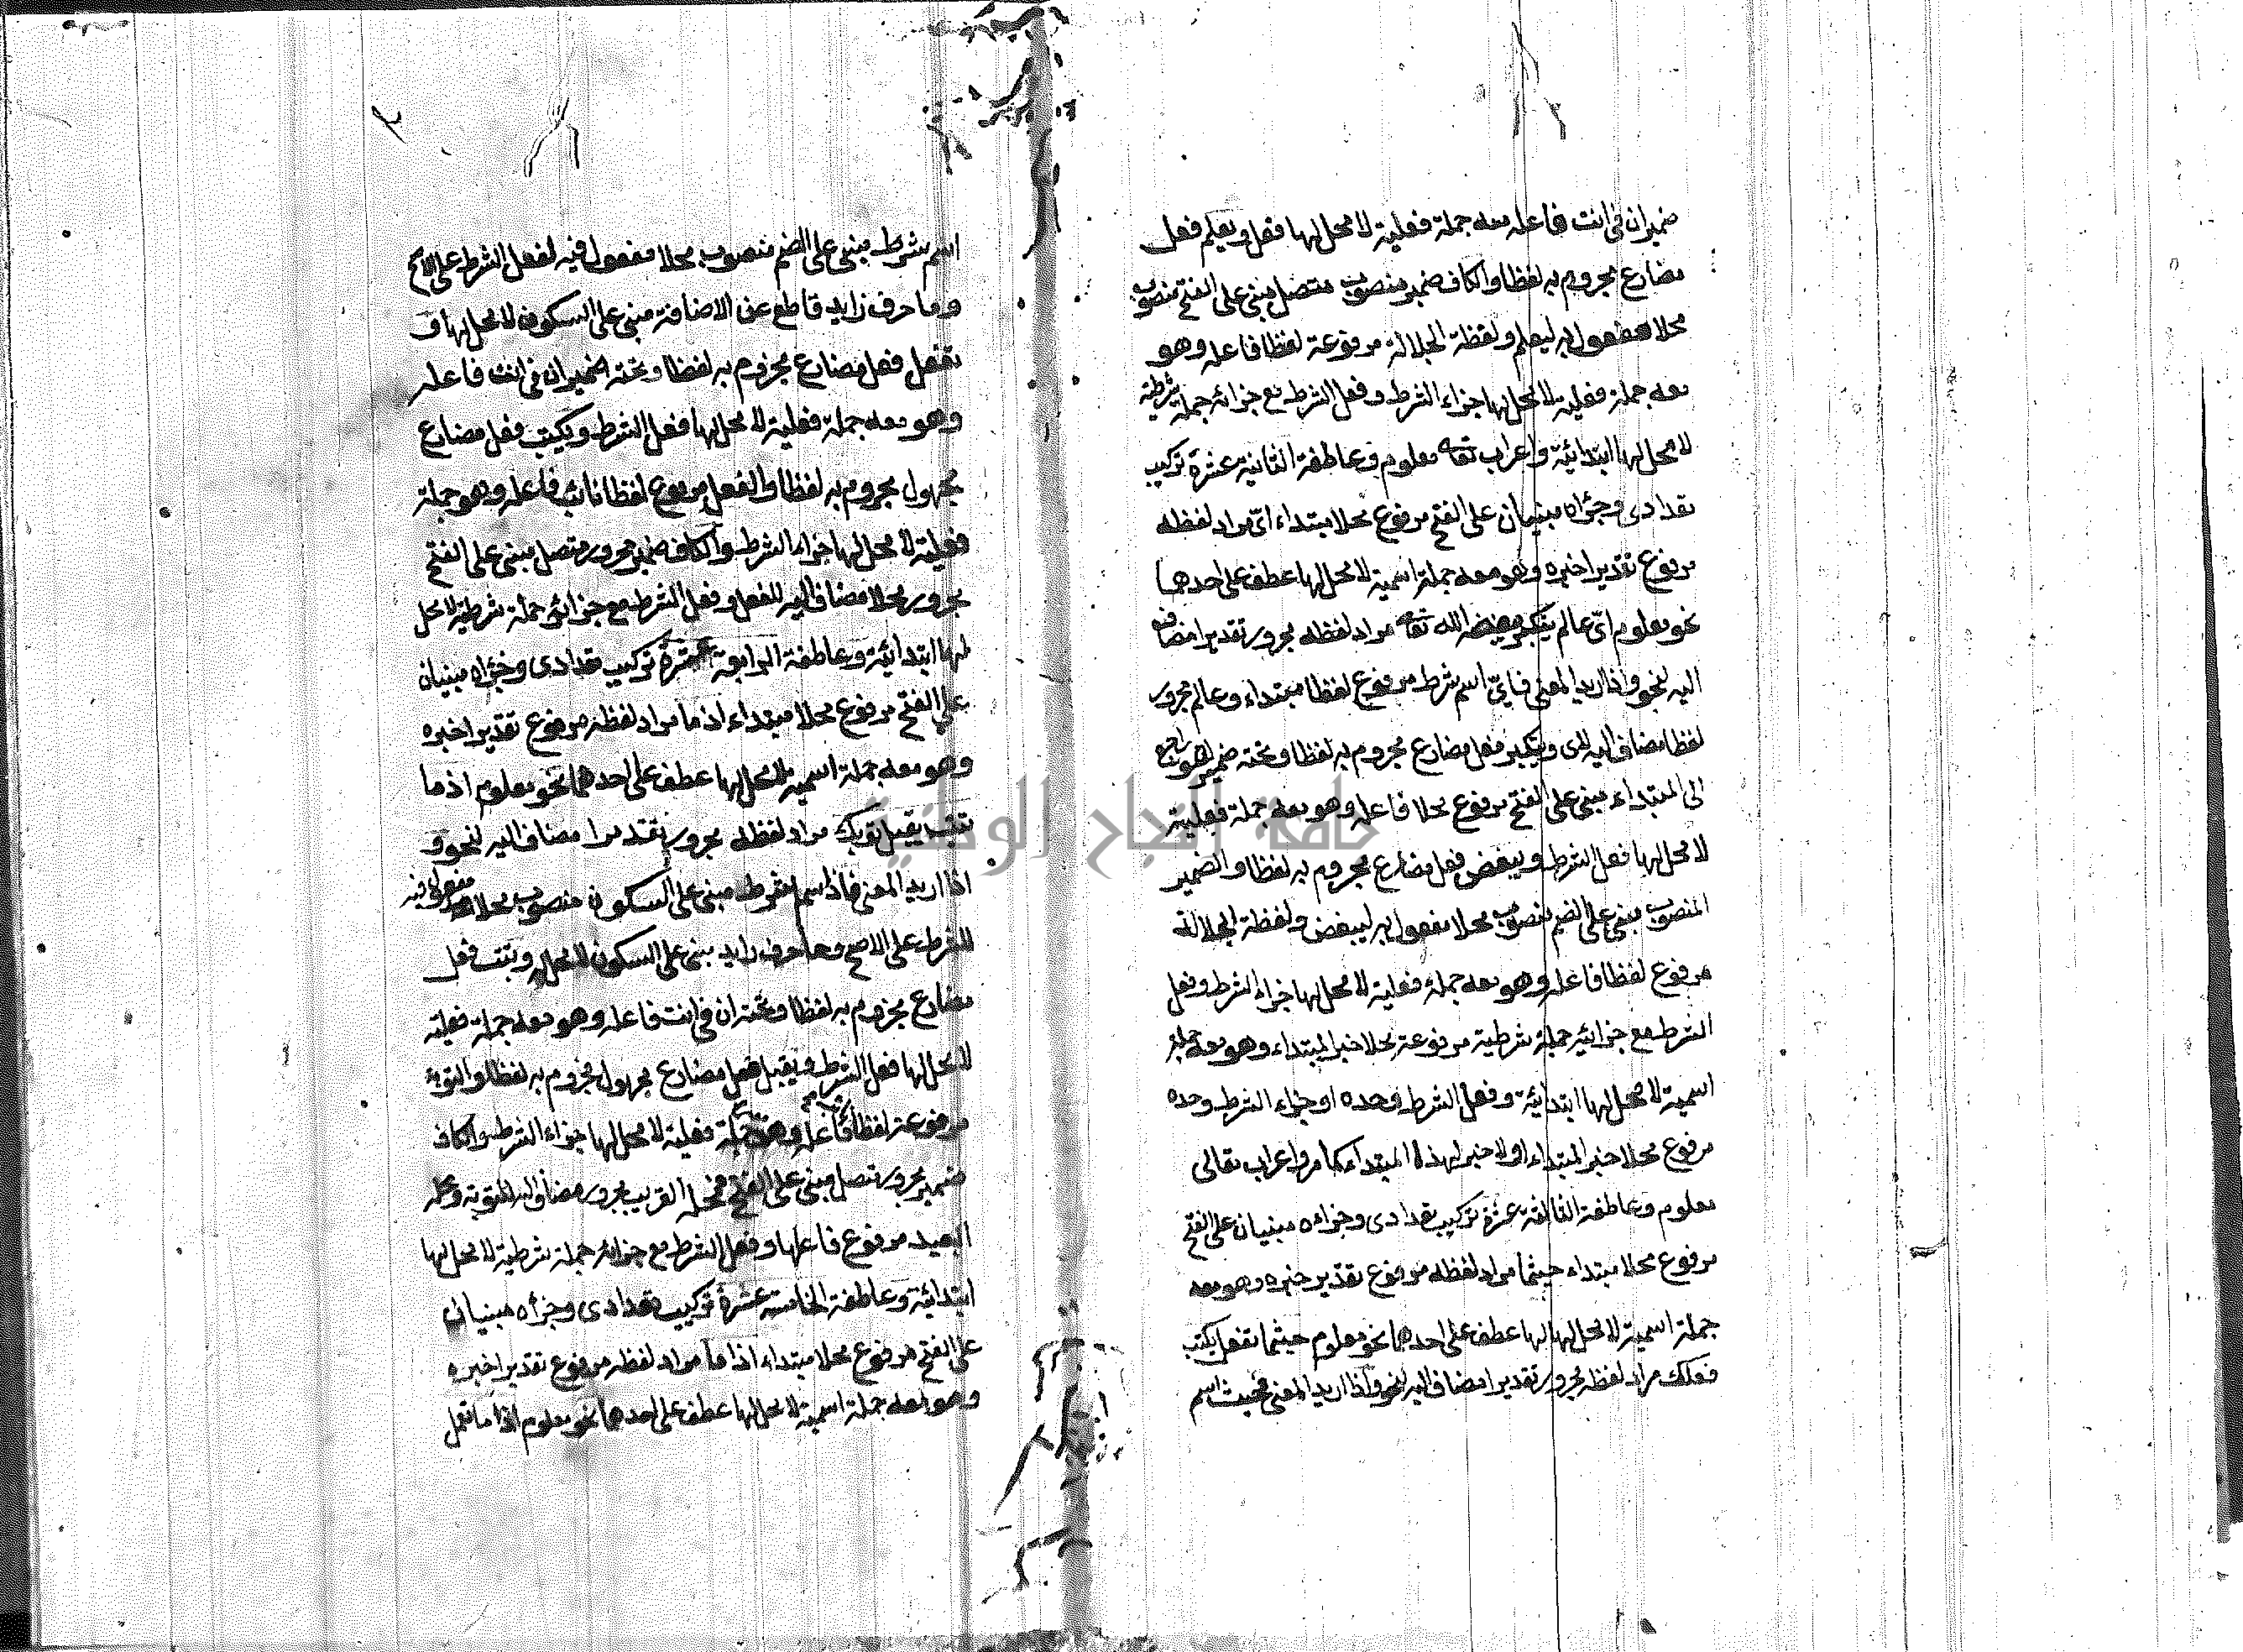 ضمير ان في انت فاعله معه جملة فعلية لا محل لها فعل و يعلم فعل
مضارع مجزوم به لفظا والكاف ضمير منصوب متصل مبني على الفتح منصوب
محلا مفعول به ليعلم ولفظة الجلالة مرفوعة لفظا فاعله وهو
معه جملة فعلية لا محل لها جزاء الشرط وفعل الشرط مع جزائه جملة شرطية
لا محل لها ابتدائية واعراب تعا معلوم وعاطفة الثانية عشرة تركيب
تعدادى وجزاه مبنيان على الفتح مرفوع محلا مبتداء اىّ مراد لفظه
مرفوع تقديرا خبره وهو معه جملة اسمية لا محل لها عطف على احدهما
نحو معلوم اىّ عالم يتكبر يبغضه الله تعا مراد لفظه مجرور تقديرا مضاف
اليه لنحو واذا اريد المعنى فاىّ اسم شرط مرفوع لفظا مبتداء وعالم مجرور
لفظا مضاف اليه لاى ويتكبر فعل مضارع مجزوم به لفظا وتحته ضمير هو راجع
الى المبتداء مبنى على الفتح مرفوع محلا فاعله وهو معه جملة فعلية
لا محل لها فعل الشرط ويبغض فعل مضارع مجزوم به لفظا والضمير
المنصوب مبنى على الضم منصوب محلا مفعول به ليبغض ولفظة الجلالة
مرفوع لفظا فاعله وهو معه جملة فعلية لا محل لها جزاء الشرط وفعل
الشرط مع جزائه جملة شرطية مرفوعة محلا خبر المبتداء وهو معه جملة
اسمية لا محل لها ابتدائية وفعل الشرط وحده او جزاء الشرط وحده
مرفوع محلا خبر المبتداء اولا خبر لهذا المبتداء كما مر واعراب تعالى
معلوم وعاطفة الثالثة عشرة تركيب تعدادى وجزاه مبنيان على الفتح
مرفوع محلا مبتداء حيثما مراد لفظه مرفوع تقدير خبره وهو معه
جملة اسمية لا محل لها لها عطف على احدهما نحو معلوم حيثما تفعل يكتب
فعلك مراد لفظه مجرور تقديرا مضاف اليه لنحو واذا اريد المعنى فحيث اسم
اسم شرط مبنى على الضم منصوب محلا مفعول فيه لفعل الشرط على الاصح
وما حرف زايد قاطع عن الاضافة مبنى على السكون لا محل لها و
تفعل فعل مضارع مجزوم به لفظا وتحته ضمير ان في انت فاعله
وهو معه جملة فعلية لا محل لها فعل الشرط ويكتب فعل مضارع
مجهول مجزوم به لفظا والفعل مرفوع لفظا نائب فاعله وهو جملة
فعلية لا محل لها جزاء الشرط والكاف ضمير مجرور متصل مبنى على الفتح
مجرور محلا مضاف اليه للفعل وفعل الشرط مع جزائه جملة شرطية لا محل
لها ابتدائية وعاطفة الرابعة عشرة تركيب تعدادى وجزاه مبنيان
على الفتح مرفوع محلا مبتداء اذما مراد لفظه مرفوع تقديرا خبره
وهو معه جملة اسمية لا محل لها عطف على احدهما نحو معلوم اذما
تتب يقبل توبتك مراد لفظه مجرور تقديرا مضاف اليه لنحو و
اذا اريد المعنى فاذ اسم شرط مبنى على السكون منصوب محلا مفعول فيه
للشرط على الاصح وما حرف زايد مبنى على السكون لا محل له وتتب فعل
مضارع مجزوم به لفظا وتحته ان في انت فاعله وهو معه جملة فعلية
لا محل لها فعل الشرط ويقبل فعل مضارع مجهول مجزوم به لفظا والتوبة
مرفوعة لفظا فاعله وهو جملة فعلية لا محل لها جزاء الشرط والكاف
ضمير مجرور متصل مبنى على الفتح محله القريب مجرور مضاف اليه للتوبة ومحله
البعيد مرفوع فاعلها وفعل الشرط مع جزائه جملة شرطية لا محل لها
ابتدائية وعاطفة الخامسة عشرة تركيب تعدادى وجزاه مبنيان
على الفتح مرفوع محلا مبتداء اذا ما مراد لفظه مرفوع تقديرا خبره
وهو معه جملة اسمية لا محل لها عطف على احدهما نحو معلوم اذا ما تعمل
جامعة النجاح الوطنية